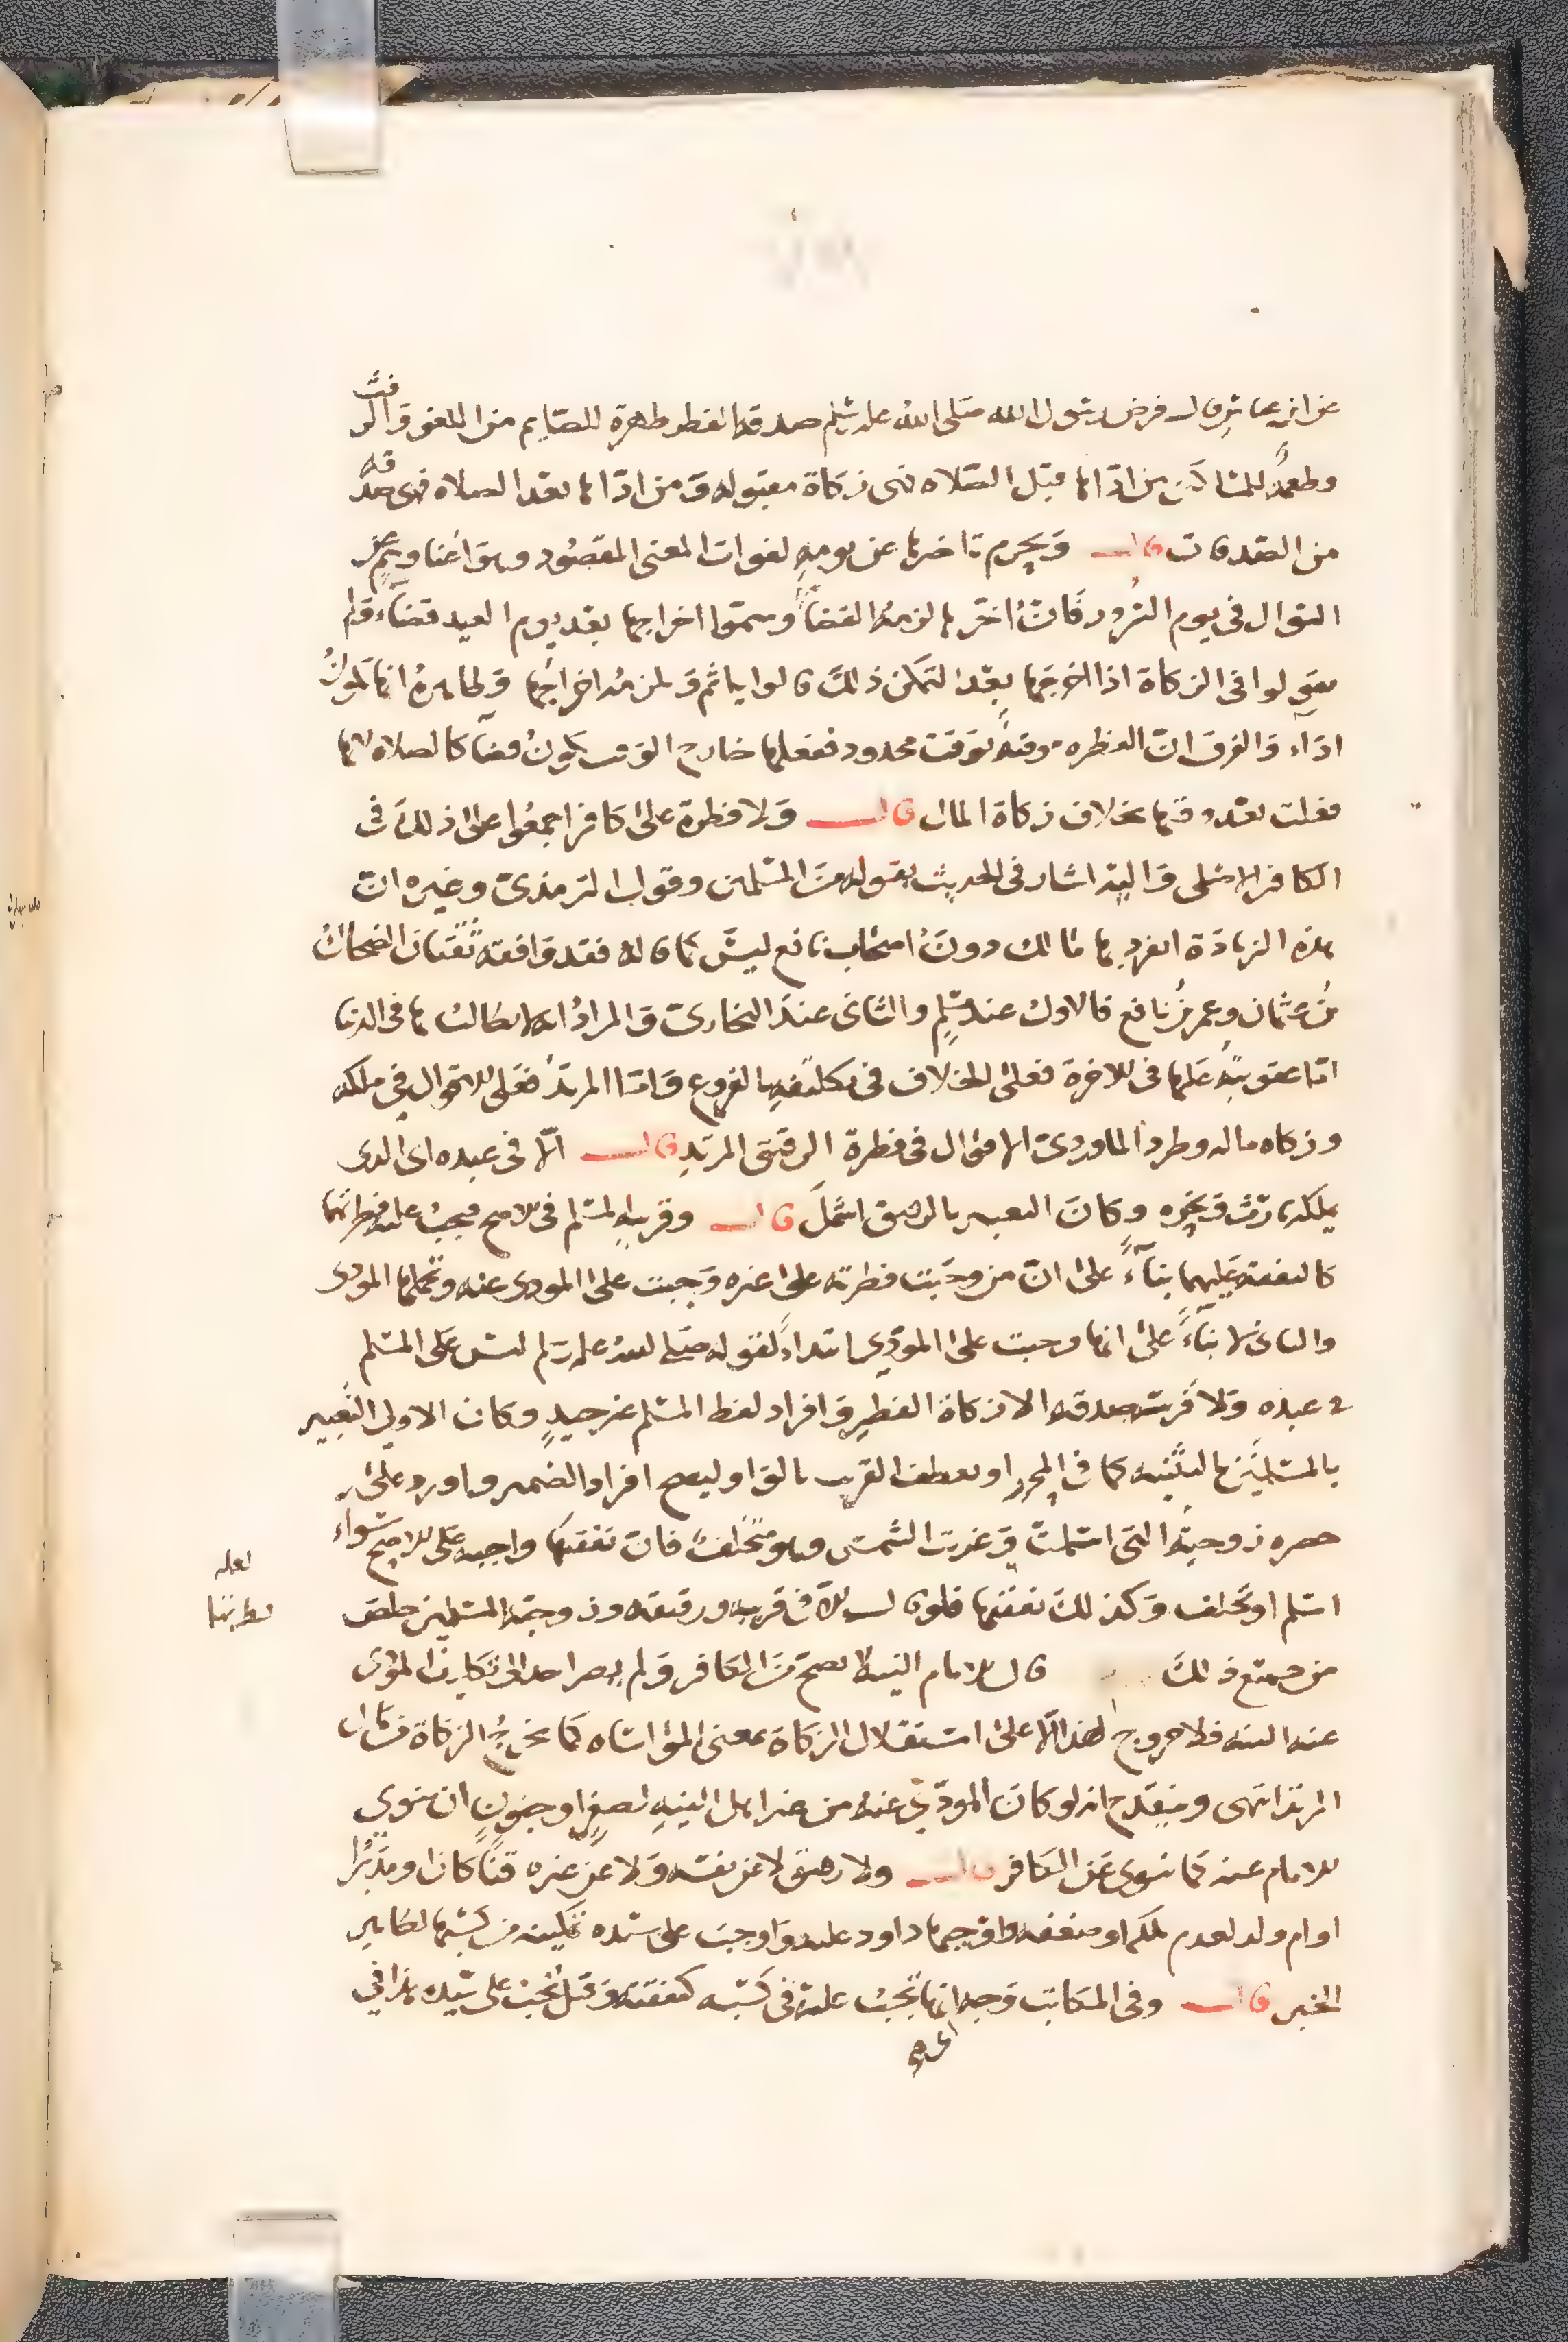 عن ابن عباس قال فرض رسول الله صلى الله عليه وسلم صدقة الفطر طهرة للصايم من اللغو والرفث
وطعمة للمساكين من اداها قبل الصلاه فهى زكاة مقبوله ومن اداها بعد الصلاه فهى صدقه
من الصدقات قال ويحرم تاخيرها عن يومه لفوات المعنى المقصود وهو اغناوهم عن
السوال فى يوم السرور فان اخرها لزمه القضا وسموا اخراجها بعد يوم العيد قضاء ولم
يقولوا فى الزكاة اذا اخرجها بعد التمكن ذلك قالوا ياثم ولزمه اخراجها وظاهره انها تكون
اداء والفرق ان الفطره موقته بوقت محدود ففعلها خارج الوقت يكون قضآ كالصلاه لانها
فعلت بعد وقتها بخلاف زكاة المال قال ولا فطرة على كافر اجمعوا على ذلك فى
الكافر الاصلى واليه اشار فى الحديث بقوله من المسلمين وقول الترمذى وغيره ان
هذه الزيادة انفرد بها مالك دون اصحاب نافع ليس كما قاله فقد وافقه ثقتان الضحاك
بن عثمان وعمر بن نافع فالاول عند مسلم والثانى عند البخارى والمراد انه لا يطالب بها فى الدنيا
اما عقوبته عليها فى الاخرة فعلى الخلاف فى تكليفه بالفروع واما المرتد فعلى الاقوال فى ملكه
وزكاه ماله وطرد الماوردى الاقوال فى فطرة الرقيق المرتد قال الا فى عبده اى الذى
يملكه بارث ونحوه وكان التعبير بالرقيق اشمل قال وقريبه المسلم فى الاصح فيجب عليه فطرتهما
كالنفقه عليهما بناء على ان من وجبت فطرته على غيره وجبت على المودى عنه وتحملها المودى
والثانى لا بناء على انها وجبت على المودى ابتداء لقوله صلى الله عليه وسلم ليس على المسلم
فى عبده ولا فرسه صدقه الا زكاة الفطر وافراد لفظ المسلم غير جيد وكان الاولى التعبير
بالمسلمين بالتثنيه كما فى المحرر او يعطف القريب بالواو ليصح افراد الضمير واورد على
حصره زوجته التى اسلمت وغربت الشمس وهو متخلف فان نفقتها واجبه على الاصح سواء
اسلم او تخلف وكذلك نفقتها فلو قال الا فى قريبه ورقيقه وزوجته المسلمين خلص
لعله
فطرتها
من جميع ذلك قال الامام النيه لا تصح من الكافر ولم يصر احد الى تكليف المودى
عنه النيه فلا خروج لهذا الا على استقلال الزكاة بمعنى المواساه كما نخرج الزكاة من مال
المرتد انتهى وينقدح انه لو كان المودى عنه من غير اهل النيه لصغر او جنون ان ينوى
الامام عنه كما ينوى عن الكافر قال ولا رقيق لا عن نفسه ولا عن غيره قنا كان او مدبرا
او ام ولد لعدم ملكه او ضعفه واوجبها داود عليه واوجب على سيده تمكينه من كسبها لظاهر
الخبر قال وفى المكاتب وجه انها تجب عليه فى كسبه كنفقته وقيل تجب على سيده هذا فى